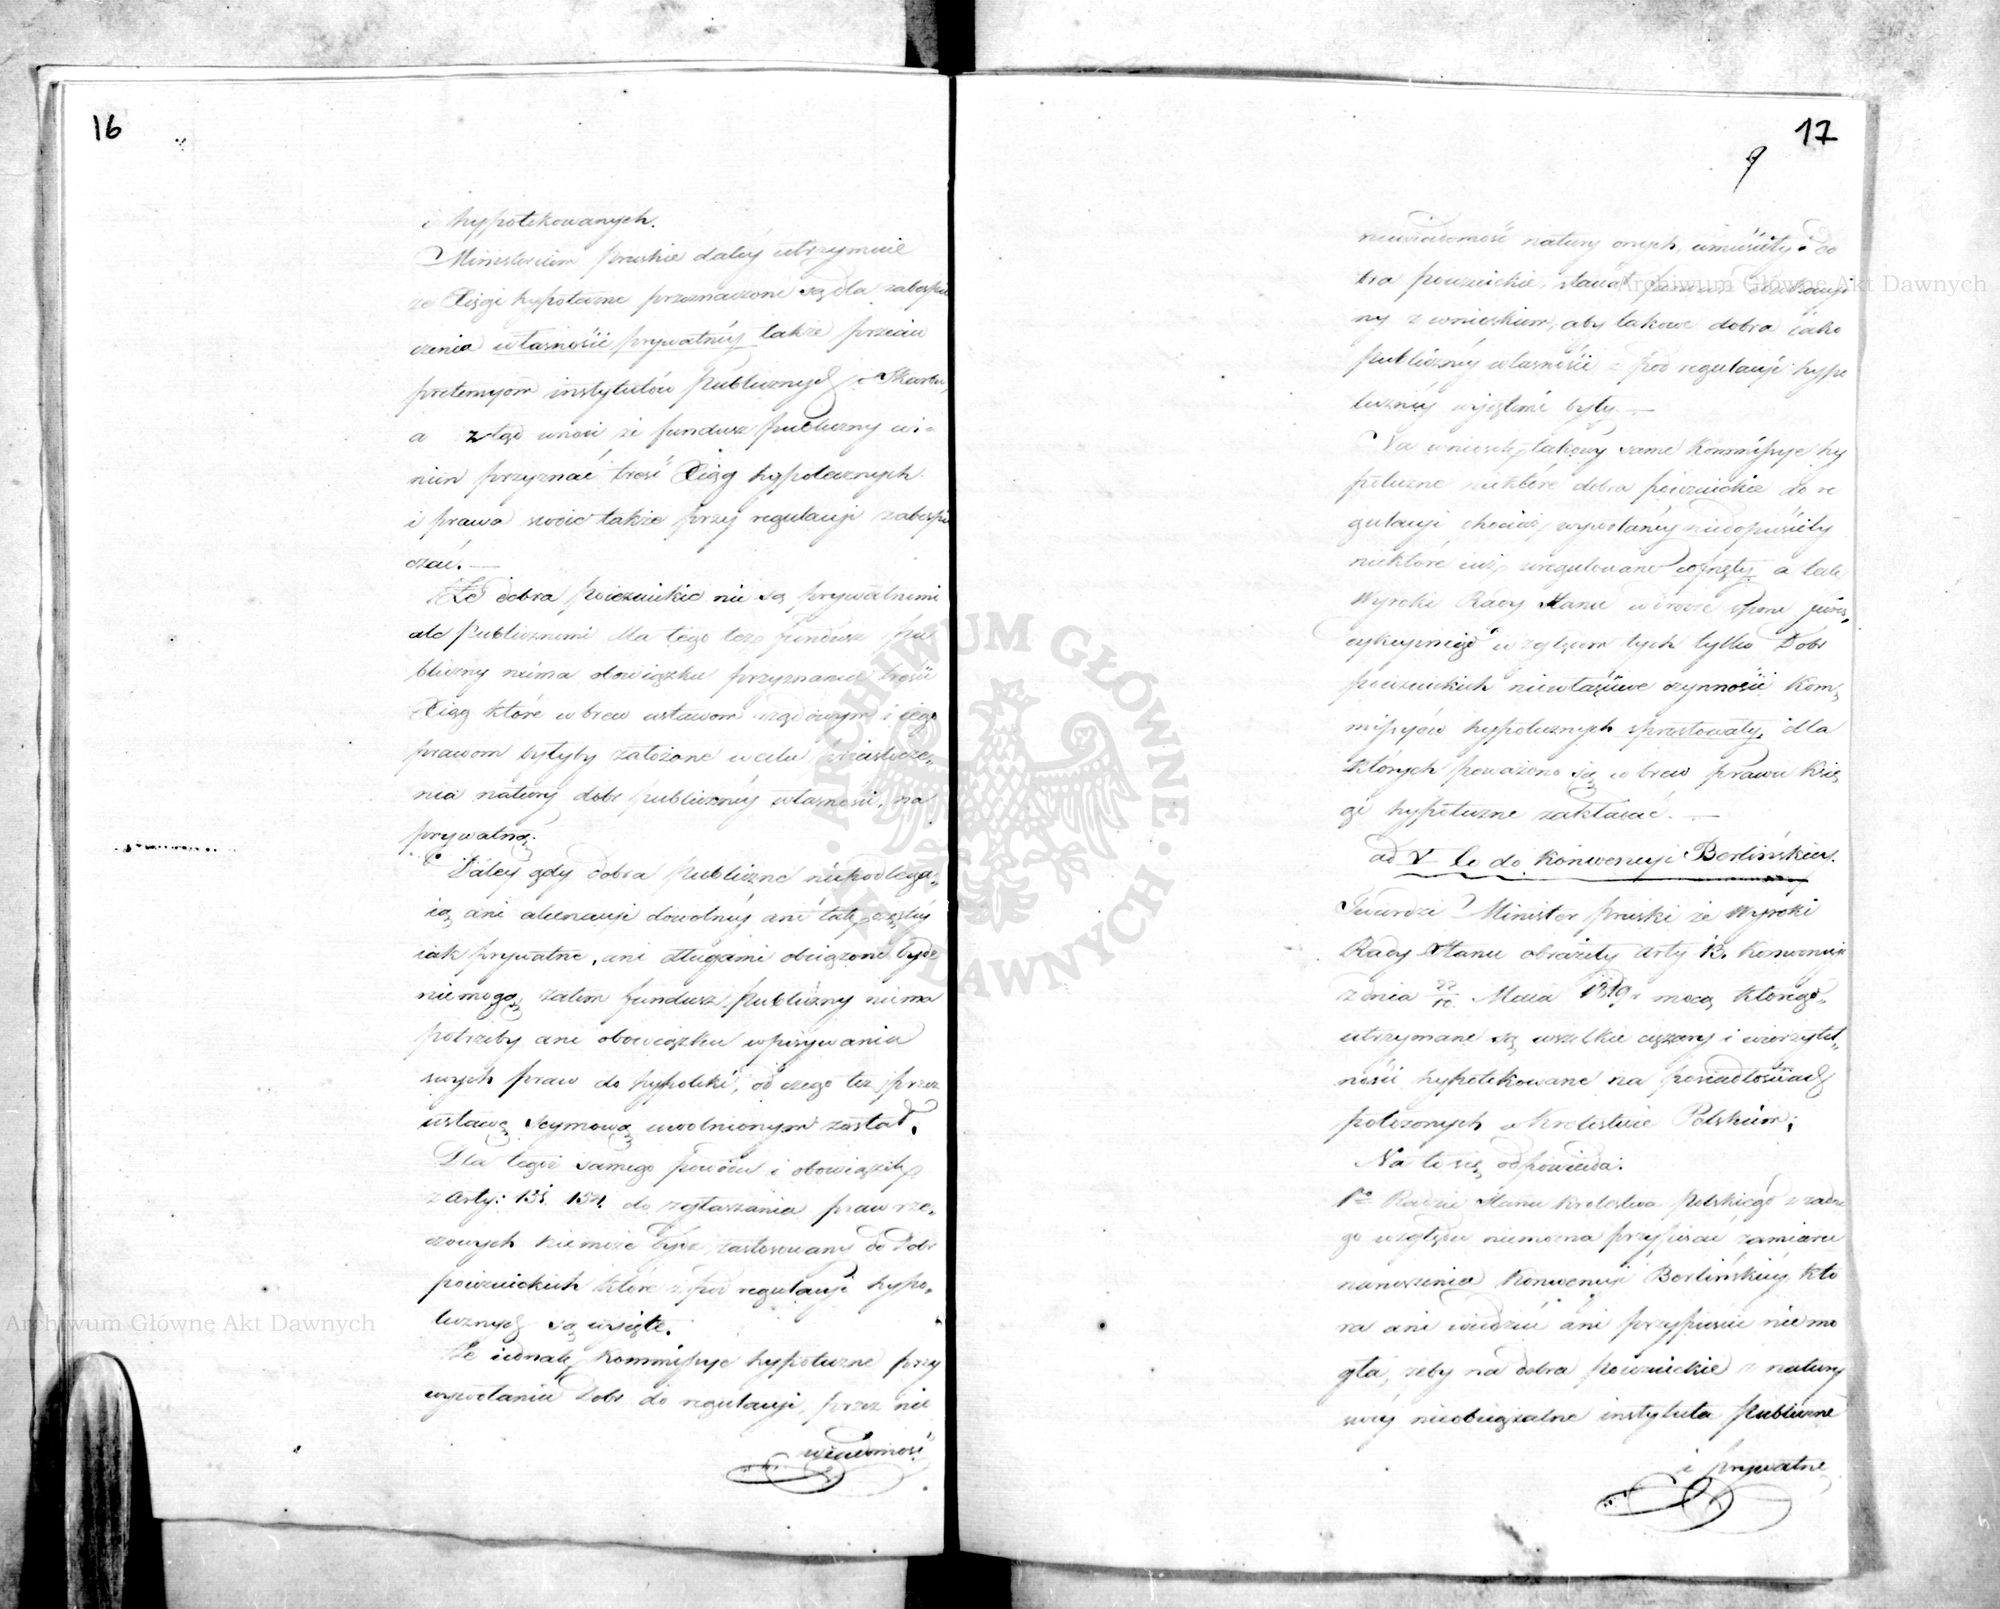 16
i hypotekowanych.
Ministerium pruskie daléy utrzymuie
że Xięgi hypoteczne przeznaczone są dla zabespie
czenia własności prywatnéy także przeciw
pretensyom instytutów Publicznych i Skarbu,
a ztąd wnosi że fundusz publiczny wi-
nien przyznać treść Xiąg hypotecznych
i prawa swoie także przy regulacyi zabespie
czać. —
Że dobra poiezuickie nie są prywatnemi
ale publicznemi dla tego też fundusz pu
bliczny niema obowiązku przyznania treści
Xiąg które wbrew ustawom rządowym i iego
prawom byłyby założone w celu przeistocze-
nia natury dóbr publicznéy własności, na
prywatną.
Daléy gdy dobra publiczne niepodlega-
ią ani alienacyi dowolnéy ani tak częstéy
iak prywatne, ani długami obciążone bydź
niemogą, zatem fundusz publiczny niema
potrzeby ani obowiązku wpisywania
swych praw do hypoteki, od czego też przez
ustawę Seymową uwolnionym został.
Dla tegoż samego powodu i obowiązek
z Arty: 151. 152. do zgłaszania praw rze-
czowych niemoże bydź zastosowany do Dóbr
poiezuickich które z pod regulacyi hypo-
tecznych są wzięte.
Że iednak Kommissye hypoteczne przy
wywołaniu Dóbr do regulacyi, przez nie
wiadomość
17
9
niewiadomość natury onych, umieściły i do
bra poiezuickie, stawał
ny z wnioskiem, aby takowe dobra iako
publicznéy własności z pod regulacyi hypo
tecznéy wyjętemi były. —
Na wniosek takowy same Kommissye hy
poteczne niektóre dobra poiezuickie do re
gulacyi chociaż wywołanéy niedopuściły
niektóre iuż uregulowane cofnęły, a tak
Wyroki Rady Stanu w drodze sporu juris-
dykcyinego względem tych tylko Dóbr
poiezuickich niewłaściwe czynności Kom-
missyów hypotecznych sprostowały, dla
których poważono się wbrew prawu Xię
gi hypoteczne zakładać. —
ad V Co do Konwencyi Berlińskiey.
Twierdzi Minister pruski że Wyroki
Rady Stanu obraziły Arty 13. Konwencyi
z dnia 22 Maia 1819 r mocą którego-
utrzymane są wszelkie ciężary i wierzytel-
ności hypotekowane na posiadłościach
położonych w Krolestwie Polskiem;
Na to się odpowiada:
1o Radzie Stanu Krolestwa Polskiego z żadne
go względu niemożna przypisać zamiaru
naruszenia Konwencyi Berlińskiéy, któ
ra ani wiedzieć ani przypuścić niemo
gła, żeby na dobra poiezuickie z natury
swéy nieobciążalne instytuta publiczne
i prywatne
Archiwum Główne Akt Dawnych
Archiwum Główne Akt Dawnych
ARCHIWUM GŁÓWNE AKT DAWNYCH